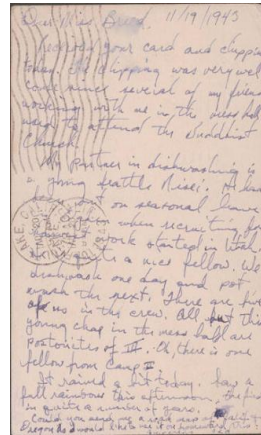 Dear Miss Breed, 11/19/1943
Received your card and clipping
today. The clipping was very wel
come since several of my friends
working with me in the mess hall
used to attend the Buddhist
Church.
My partner in dishwashing is
a young Seattle Nisei. He had
been out on seasonal leave
when recruiting for
work started in
quite a nice fellow. We
dishwash one day, and pot
wash the next. There are five
of us in the crew. All but this
young chap in the mess hall are
Postonites of III. Oh, there is one
fellow from Camp II.
It rained a bit today. Saw a
full rainbow this afternoon, the first
in quite a number of years.
Could you send me a